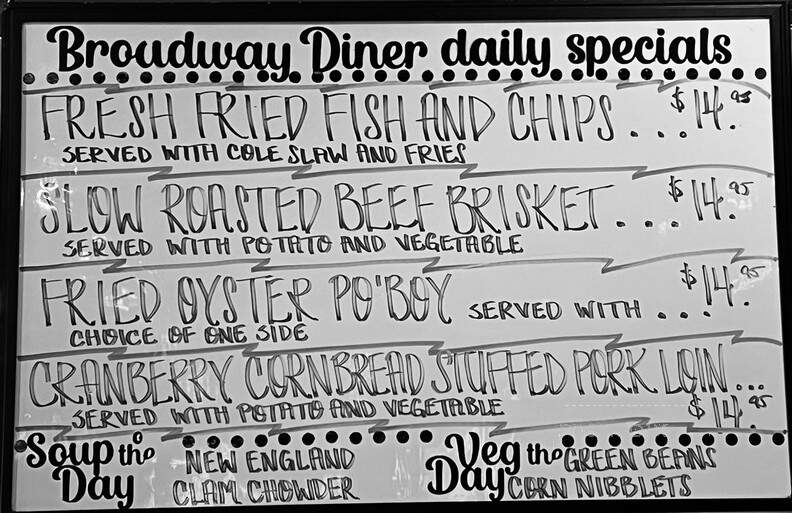 Broadway Diner daily specials
FRESH FRIED FISH AND CHIPS ... $14.95
SERVED WITH COLE SLAW AND FRIES
SLOW ROASTED BEEF BRISKET ... $14.95
SERVED WITH POTATO AND VEGETABLE
FRIED OYSTER PO'BOY SERVED WITH ... $14.95
CHOICE OF ONE SIDE
CRANBERRY CORNBREAD STUFFED PORK LOIN...
SERVED WITH POTATO AND VEGETABLE $14.95
Soup of the Day NEW ENGLAND
CLAM CHOWDER
Veg the Day GREEN BEANS
CORN NIBBLETS